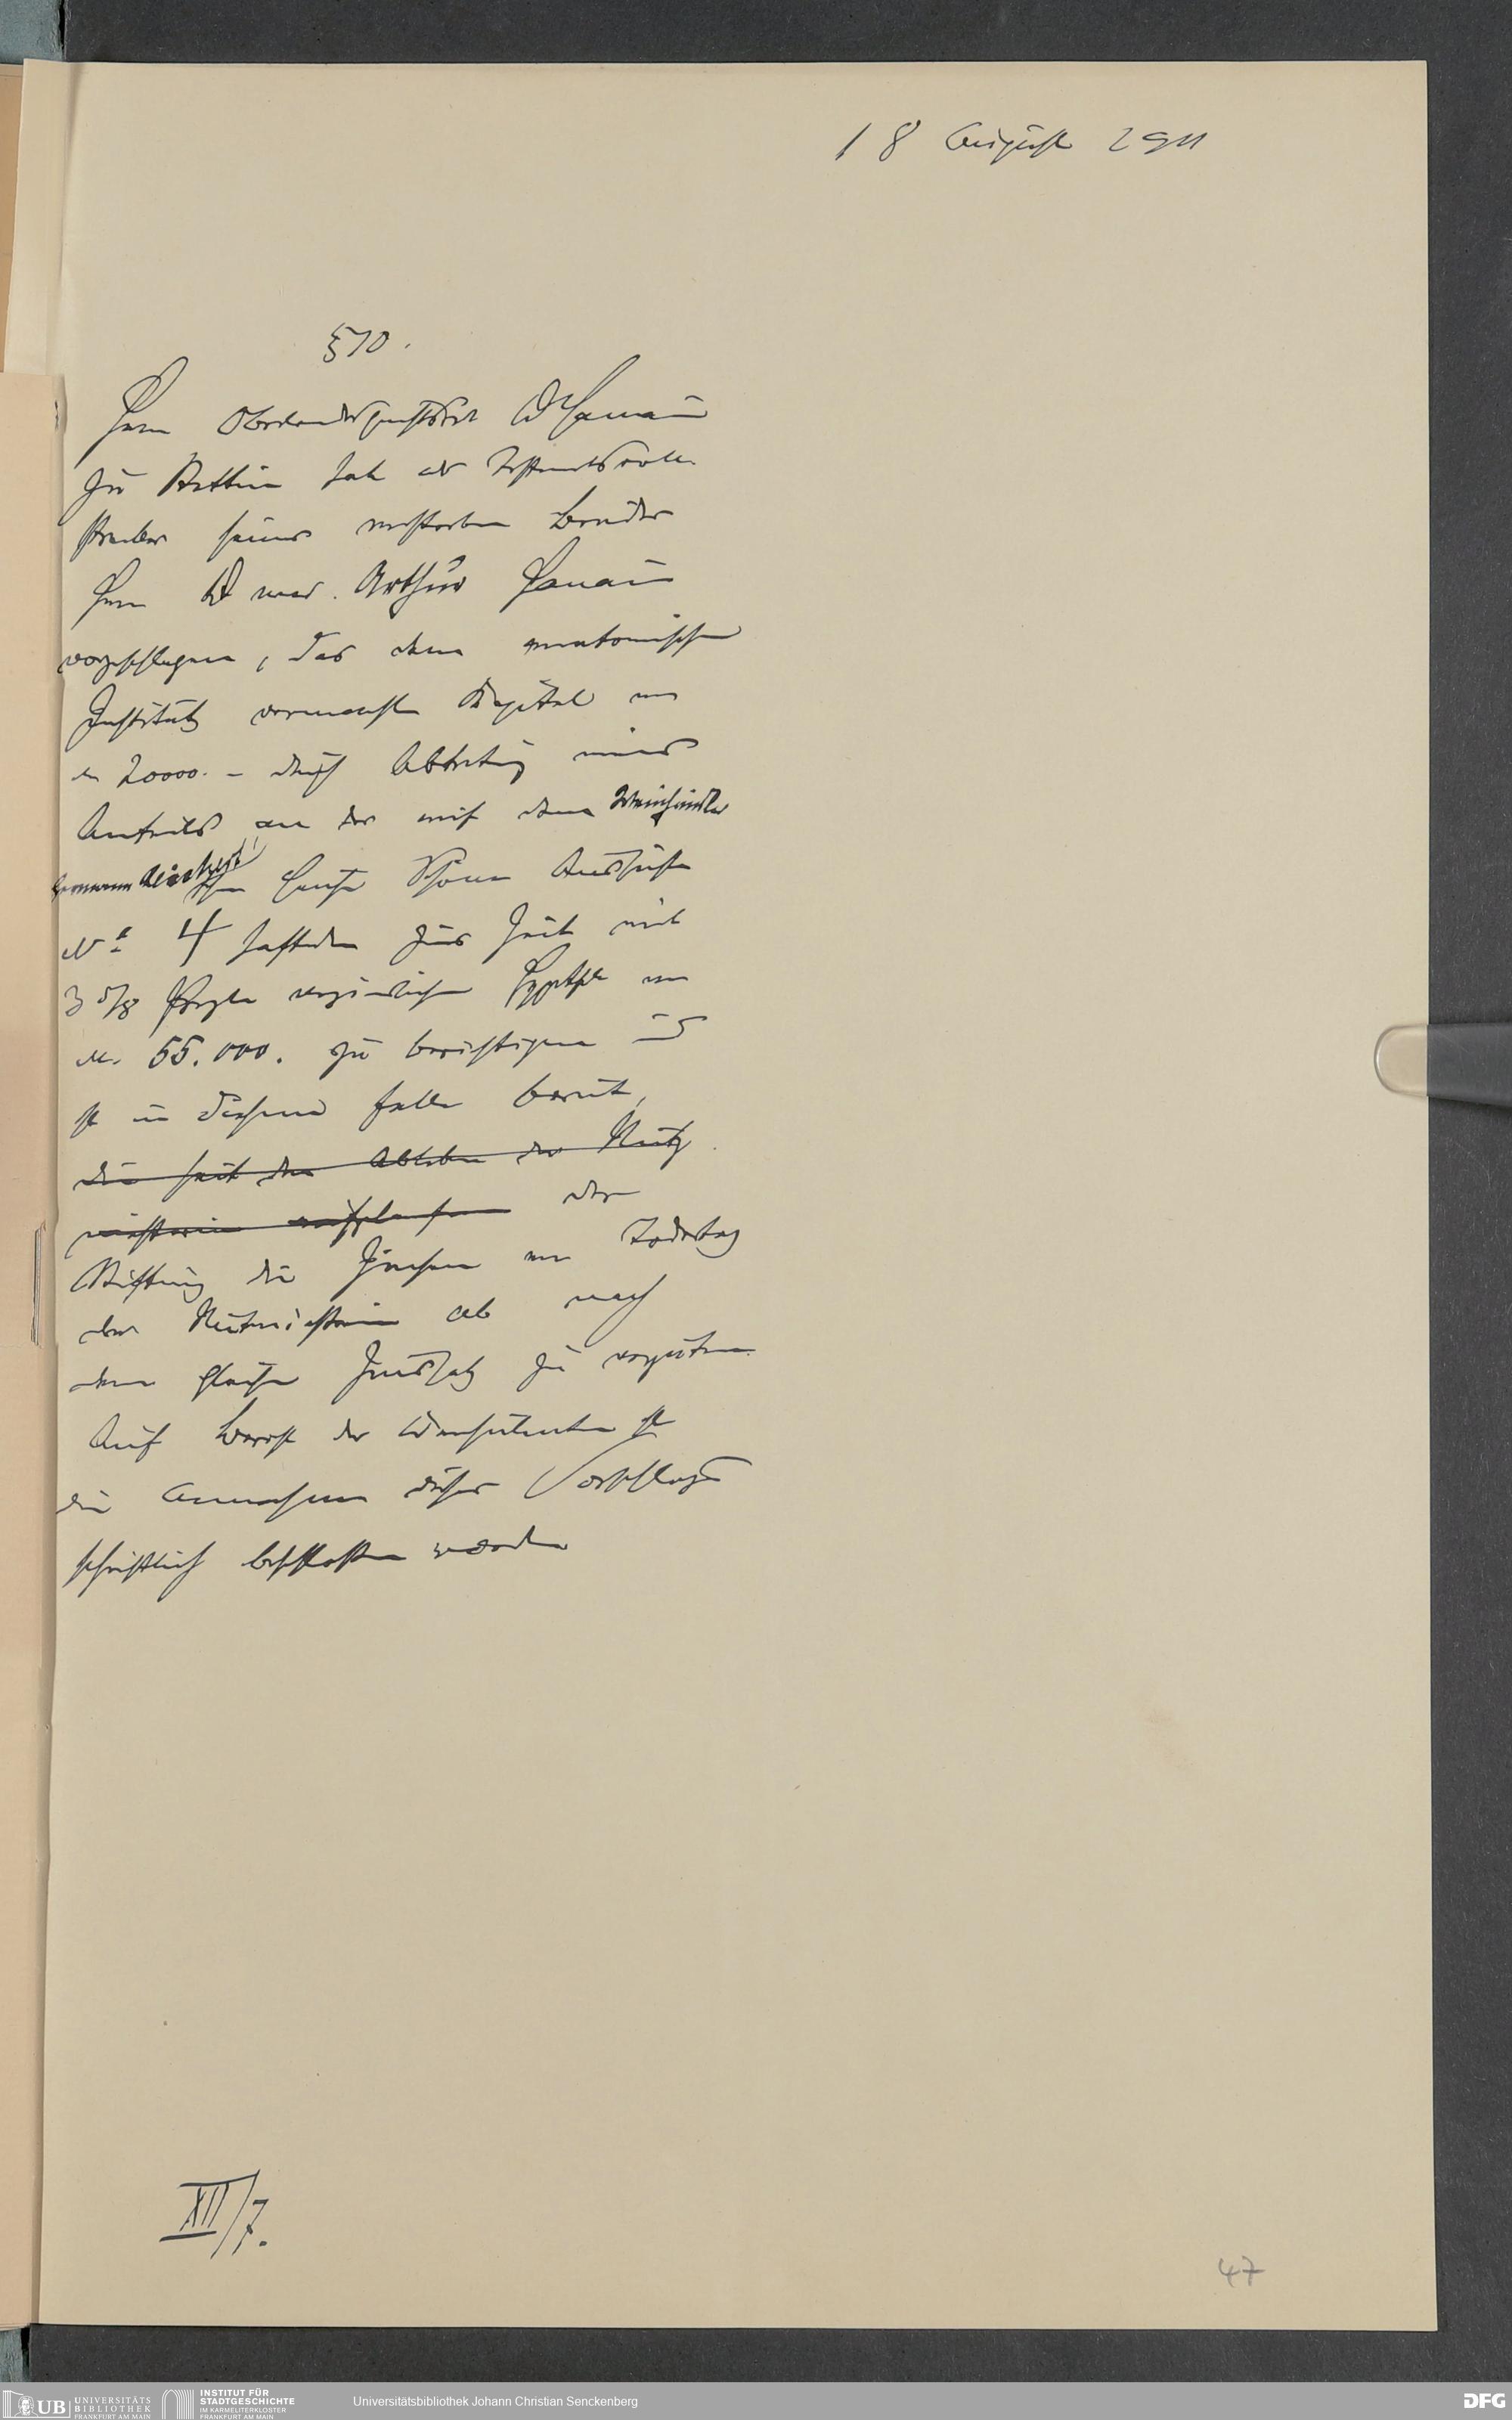 18 August 1911
§ 10.
Herr Oberlandesgerichtsrat Dr Hanau
zu Stettin hat als Testamentsvoll-
strecker seines verstorbenen Bruders
Herrn Dr med. Arthur Hanau
vorgeschlagen, das dem anatomischen
Institut vermachte Kapital von
M 20000.- durch Abtretung eines
Anteils an der auf dem Weinhändler
Hermann schen Hause Schöne Aussicht
No 4 haftenden zur Zeit mit
3 5/8 Prozent verzinslichen Hypothek von
M. 55.000. zu berichtigen und
ist in diesem Falle bereit,
die seit dem Ableben der Nutz-
niesserin aufgelaufenen der
Stiftung die Zinsen vom Todestag
der Nutzniesserin ab nach
dem gleichen Zinssatz zu vergüten.
Auf Bericht der Consulenten ist
die Annahme dieses Vorschlages
schriftlich beschlossen worden
XII/7.
47
UB UNIVERSITÄTS
BIBLIOTHEK
FRANKFURT AM MAIN
INSTITUT FÜR
STADTGESCHICHTE
IM KARMELITERKLOSTER
FRANKFURT AM MAIN
Universitätsbibliothek Johann Christian Senckenberg
DFG